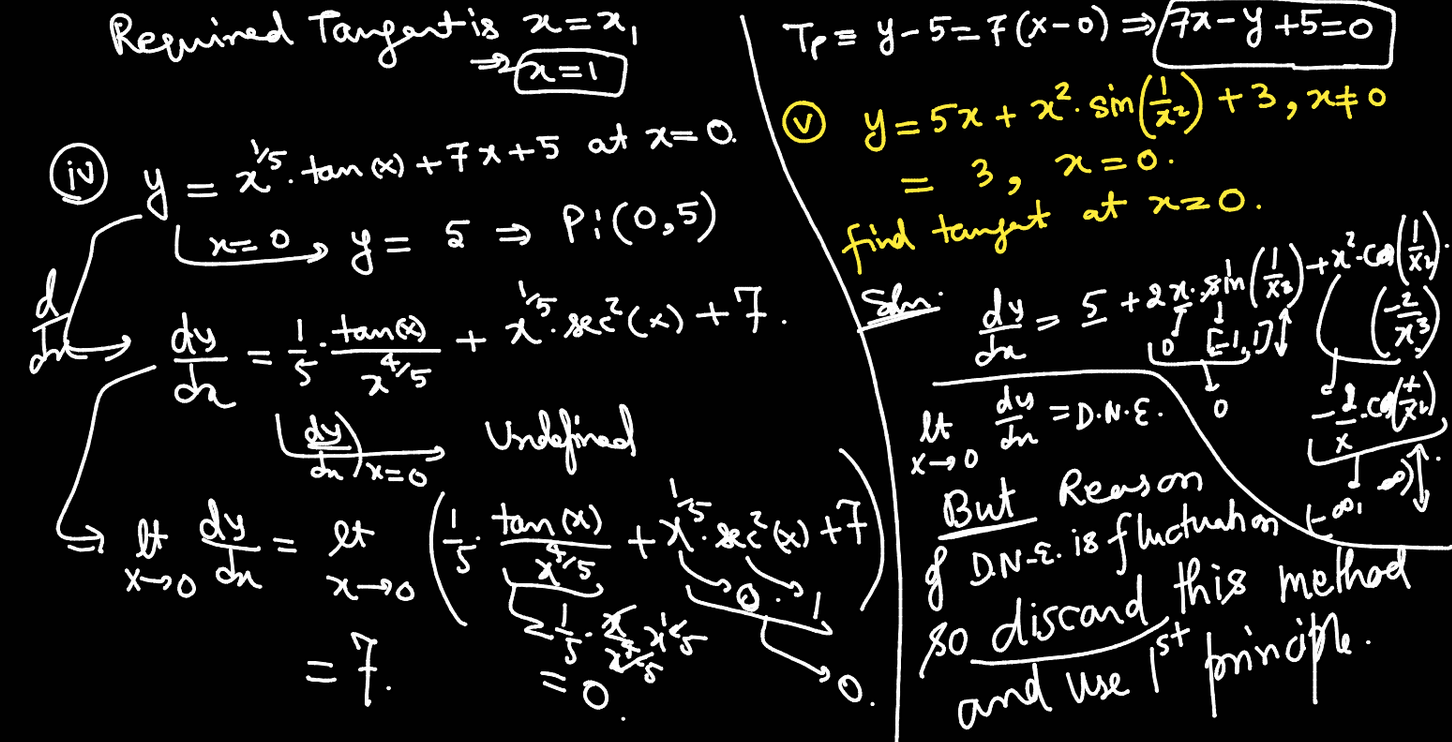 Required Tangent is x = x₁
⇒ x = 1
(iv) y = x^(1/5) · tan(x) + 7x + 5 at x = 0.
x = 0 → y = 5 ⇒ P:(0,5)
d/dx → dy/dx = 1/5 · tan(x)/x^(4/5) + x^(1/5) · sec²(x) + 7.
dy/dx) x=0 → Undefined
⇒ lt x→0 dy/dx = lt x→0 (1/5 · tan(x)/x^(4/5) + x^(1/5) · sec²(x) + 7)
1/5 · x/x^(4/5) x^(1/5) → 0 · → 1
= 7. = 0. → 0.
T_P ≡ y − 5 = 7(x − 0) ⇒ 7x − y + 5 = 0
(v) y = 5x + x² · sin(1/x²) + 3, x ≠ 0
= 3, x = 0.
find tangent at x = 0.
Soln: dy/dx = 5 + 2x · sin(1/x²) + x² · cos(1/x²) · (−2/x³)
0 [-1, 1] ↕
0 −2/x · cos(1/x²)
(−∞, ∞) ↕
lt x→0 dy/dx = D.N.E.
But Reason
of D.N.E. is fluctuation
so discard this method
and use 1st principle.